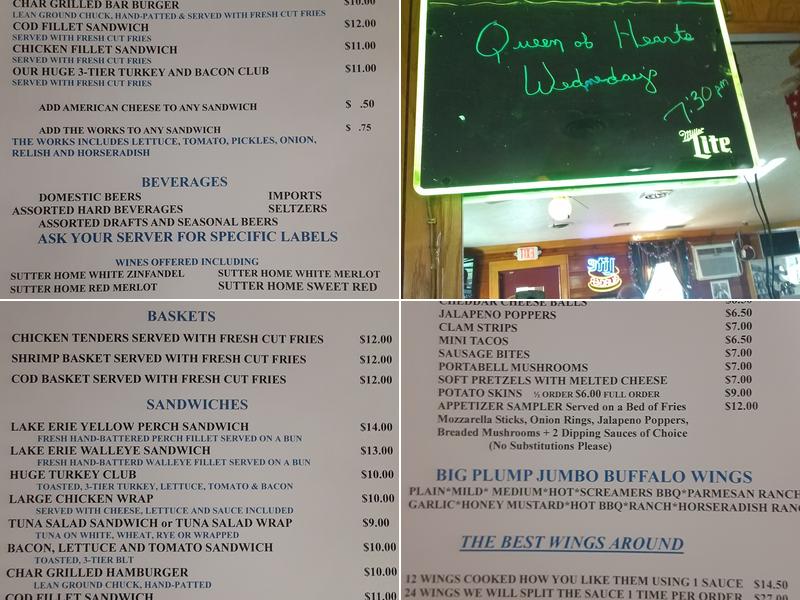 CHAR GRILLED BAR BURGER $10.00
LEAN GROUND CHUCK, HAND-PATTED & SERVED WITH FRESH CUT FRIES
COD FILLET SANDWICH $12.00
SERVED WITH FRESH CUT FRIES
CHICKEN FILLET SANDWICH $11.00
SERVED WITH FRESH CUT FRIES
OUR HUGE 3-TIER TURKEY AND BACON CLUB $11.00
SERVED WITH FRESH CUT FRIES
ADD AMERICAN CHEESE TO ANY SANDWICH $ .50
ADD THE WORKS TO ANY SANDWICH $ .75
THE WORKS INCLUDES LETTUCE, TOMATO, PICKLES, ONION,
RELISH AND HORSERADISH
BEVERAGES
DOMESTIC BEERS IMPORTS
ASSORTED HARD BEVERAGES SELTZERS
ASSORTED DRAFTS AND SEASONAL BEERS
ASK YOUR SERVER FOR SPECIFIC LABELS
WINES OFFERED INCLUDING
SUTTER HOME WHITE ZINFANDEL SUTTER HOME WHITE MERLOT
SUTTER HOME RED MERLOT SUTTER HOME SWEET RED
Queen of Hearts
Wednesdays
7:30 pm
Miller
Lite
EXIT
Lite
BASKETS
CHICKEN TENDERS SERVED WITH FRESH CUT FRIES $12.00
SHRIMP BASKET SERVED WITH FRESH CUT FRIES $12.00
COD BASKET SERVED WITH FRESH CUT FRIES $12.00
SANDWICHES
LAKE ERIE YELLOW PERCH SANDWICH $14.00
FRESH HAND-BATTERED PERCH FILLET SERVED ON A BUN
LAKE ERIE WALLEYE SANDWICH $13.00
FRESH HAND-BATTERD WALLEYE FILLET SERVED ON A BUN
HUGE TURKEY CLUB $10.00
TOASTED, 3-TIER TURKEY, LETTUCE, TOMATO & BACON
LARGE CHICKEN WRAP $10.00
SERVED WITH CHEESE, LETTUCE AND SAUCE INCLUDED
TUNA SALAD SANDWICH or TUNA SALAD WRAP $9.00
TUNA ON WHITE, WHEAT, RYE OR WRAPPED
BACON, LETTUCE AND TOMATO SANDWICH $10.00
TOASTED, 3-TIER BLT
CHAR GRILLED HAMBURGER $10.00
LEAN GROUND CHUCK, HAND-PATTED
COD FILLET SANDWICH $11.00
CHEDDAR CHEESE BALLS $6.50
JALAPENO POPPERS $6.50
CLAM STRIPS $7.00
MINI TACOS $6.50
SAUSAGE BITES $7.00
PORTABELL MUSHROOMS $7.00
SOFT PRETZELS WITH MELTED CHEESE $7.00
POTATO SKINS ½ ORDER $6.00 FULL ORDER $9.00
APPETIZER SAMPLER Served on a Bed of Fries $12.00
Mozzarella Sticks, Onion Rings, Jalapeno Poppers,
Breaded Mushrooms + 2 Dipping Sauces of Choice
(No Substitutions Please)
BIG PLUMP JUMBO BUFFALO WINGS
PLAIN*MILD* MEDIUM*HOT*SCREAMERS BBQ*PARMESAN RANCH
GARLIC*HONEY MUSTARD*HOT BBQ*RANCH*HORSERADISH RAN
THE BEST WINGS AROUND
12 WINGS COOKED HOW YOU LIKE THEM USING 1 SAUCE $14.50
24 WINGS WE WILL SPLIT THE SAUCE 1 TIME PER ORDER $27.00